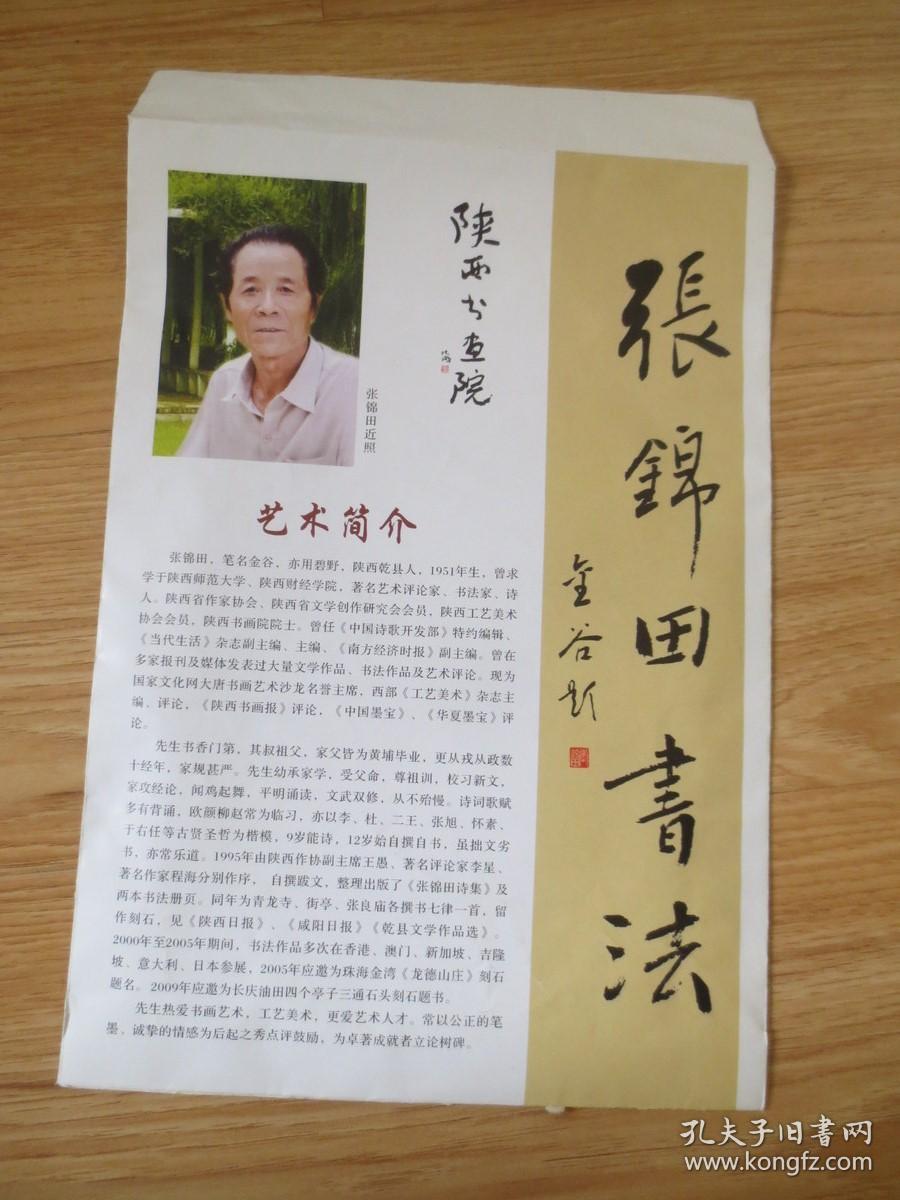 陕西书画院
張錦田書法
金谷题
张锦田近照
艺术简介
张锦田，笔名金谷，亦用碧野，陕西乾县人，1951年生，曾求
学于陕西师范大学、陕西财经学院，著名艺术评论家、书法家、诗
人。陕西省作家协会、陕西省文学创作研究会会员，陕西工艺美术
协会会员，陕西书画院院士。曾任《中国诗歌开发部》特约编辑、
《当代生活》杂志副主编、主编、《南方经济时报》副主编。曾在
多家报刊及媒体发表过大量文学作品、书法作品及艺术评论。现为
国家文化网大唐书画艺术沙龙名誉主席，西部《工艺美术》杂志主
编、评论，《陕西书画报》评论，《中国墨宝》、《华夏墨宝》评
论。
先生书香门第，其叔祖父，家父皆为黄埔毕业，更从戎从政数
十经年，家规甚严。先生幼承家学，受父命，尊祖训，校习新文，
家攻经论，闻鸡起舞，平明诵读，文武双修，从不殆慢。诗词歌赋
多有背诵，欧颜柳赵常为临习，亦以李、杜、二王、张旭、怀素、
于右任等古贤圣哲为楷模，9岁能诗，12岁始自撰自书，虽拙文劣
书，亦常乐道。1995年由陕西作协副主席王愚、著名评论家李星、
著名作家程海分别作序， 自撰跋文，整理出版了《张锦田诗集》及
两本书法册页。同年为青龙寺、街亭、张良庙各撰书七律一首，留
作刻石，见《陕西日报》、《咸阳日报》《乾县文学作品选》。
2000年至2005年期间，书法作品多次在香港、澳门、新加坡、吉隆
坡、意大利、日本参展，2005年应邀为珠海金湾《龙德山庄》刻石
题名。2009年应邀为长庆油田四个亭子三通石头刻石题书。
先生热爱书画艺术，工艺美术，更爱艺术人才。常以公正的笔
墨、诚挚的情感为后起之秀点评鼓励，为卓著成就者立论树碑。
孔夫子旧书网
www.kongfz.com